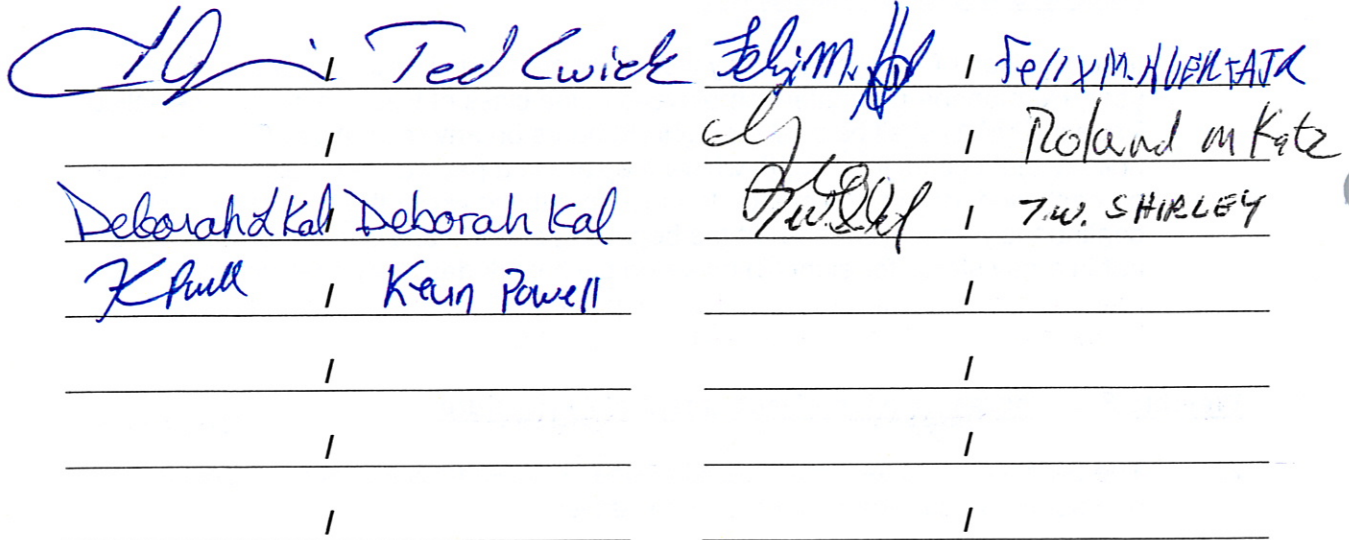 / Ted Cwiek
/
Deborah L Kal / Deborah Kal
K Powell / Kevin Powell
/
/
/
Felix M. / Felix M. HUERTA JR
/ Roland M Katz
T.W. / T.W. SHIRLEY
/
/
/
/